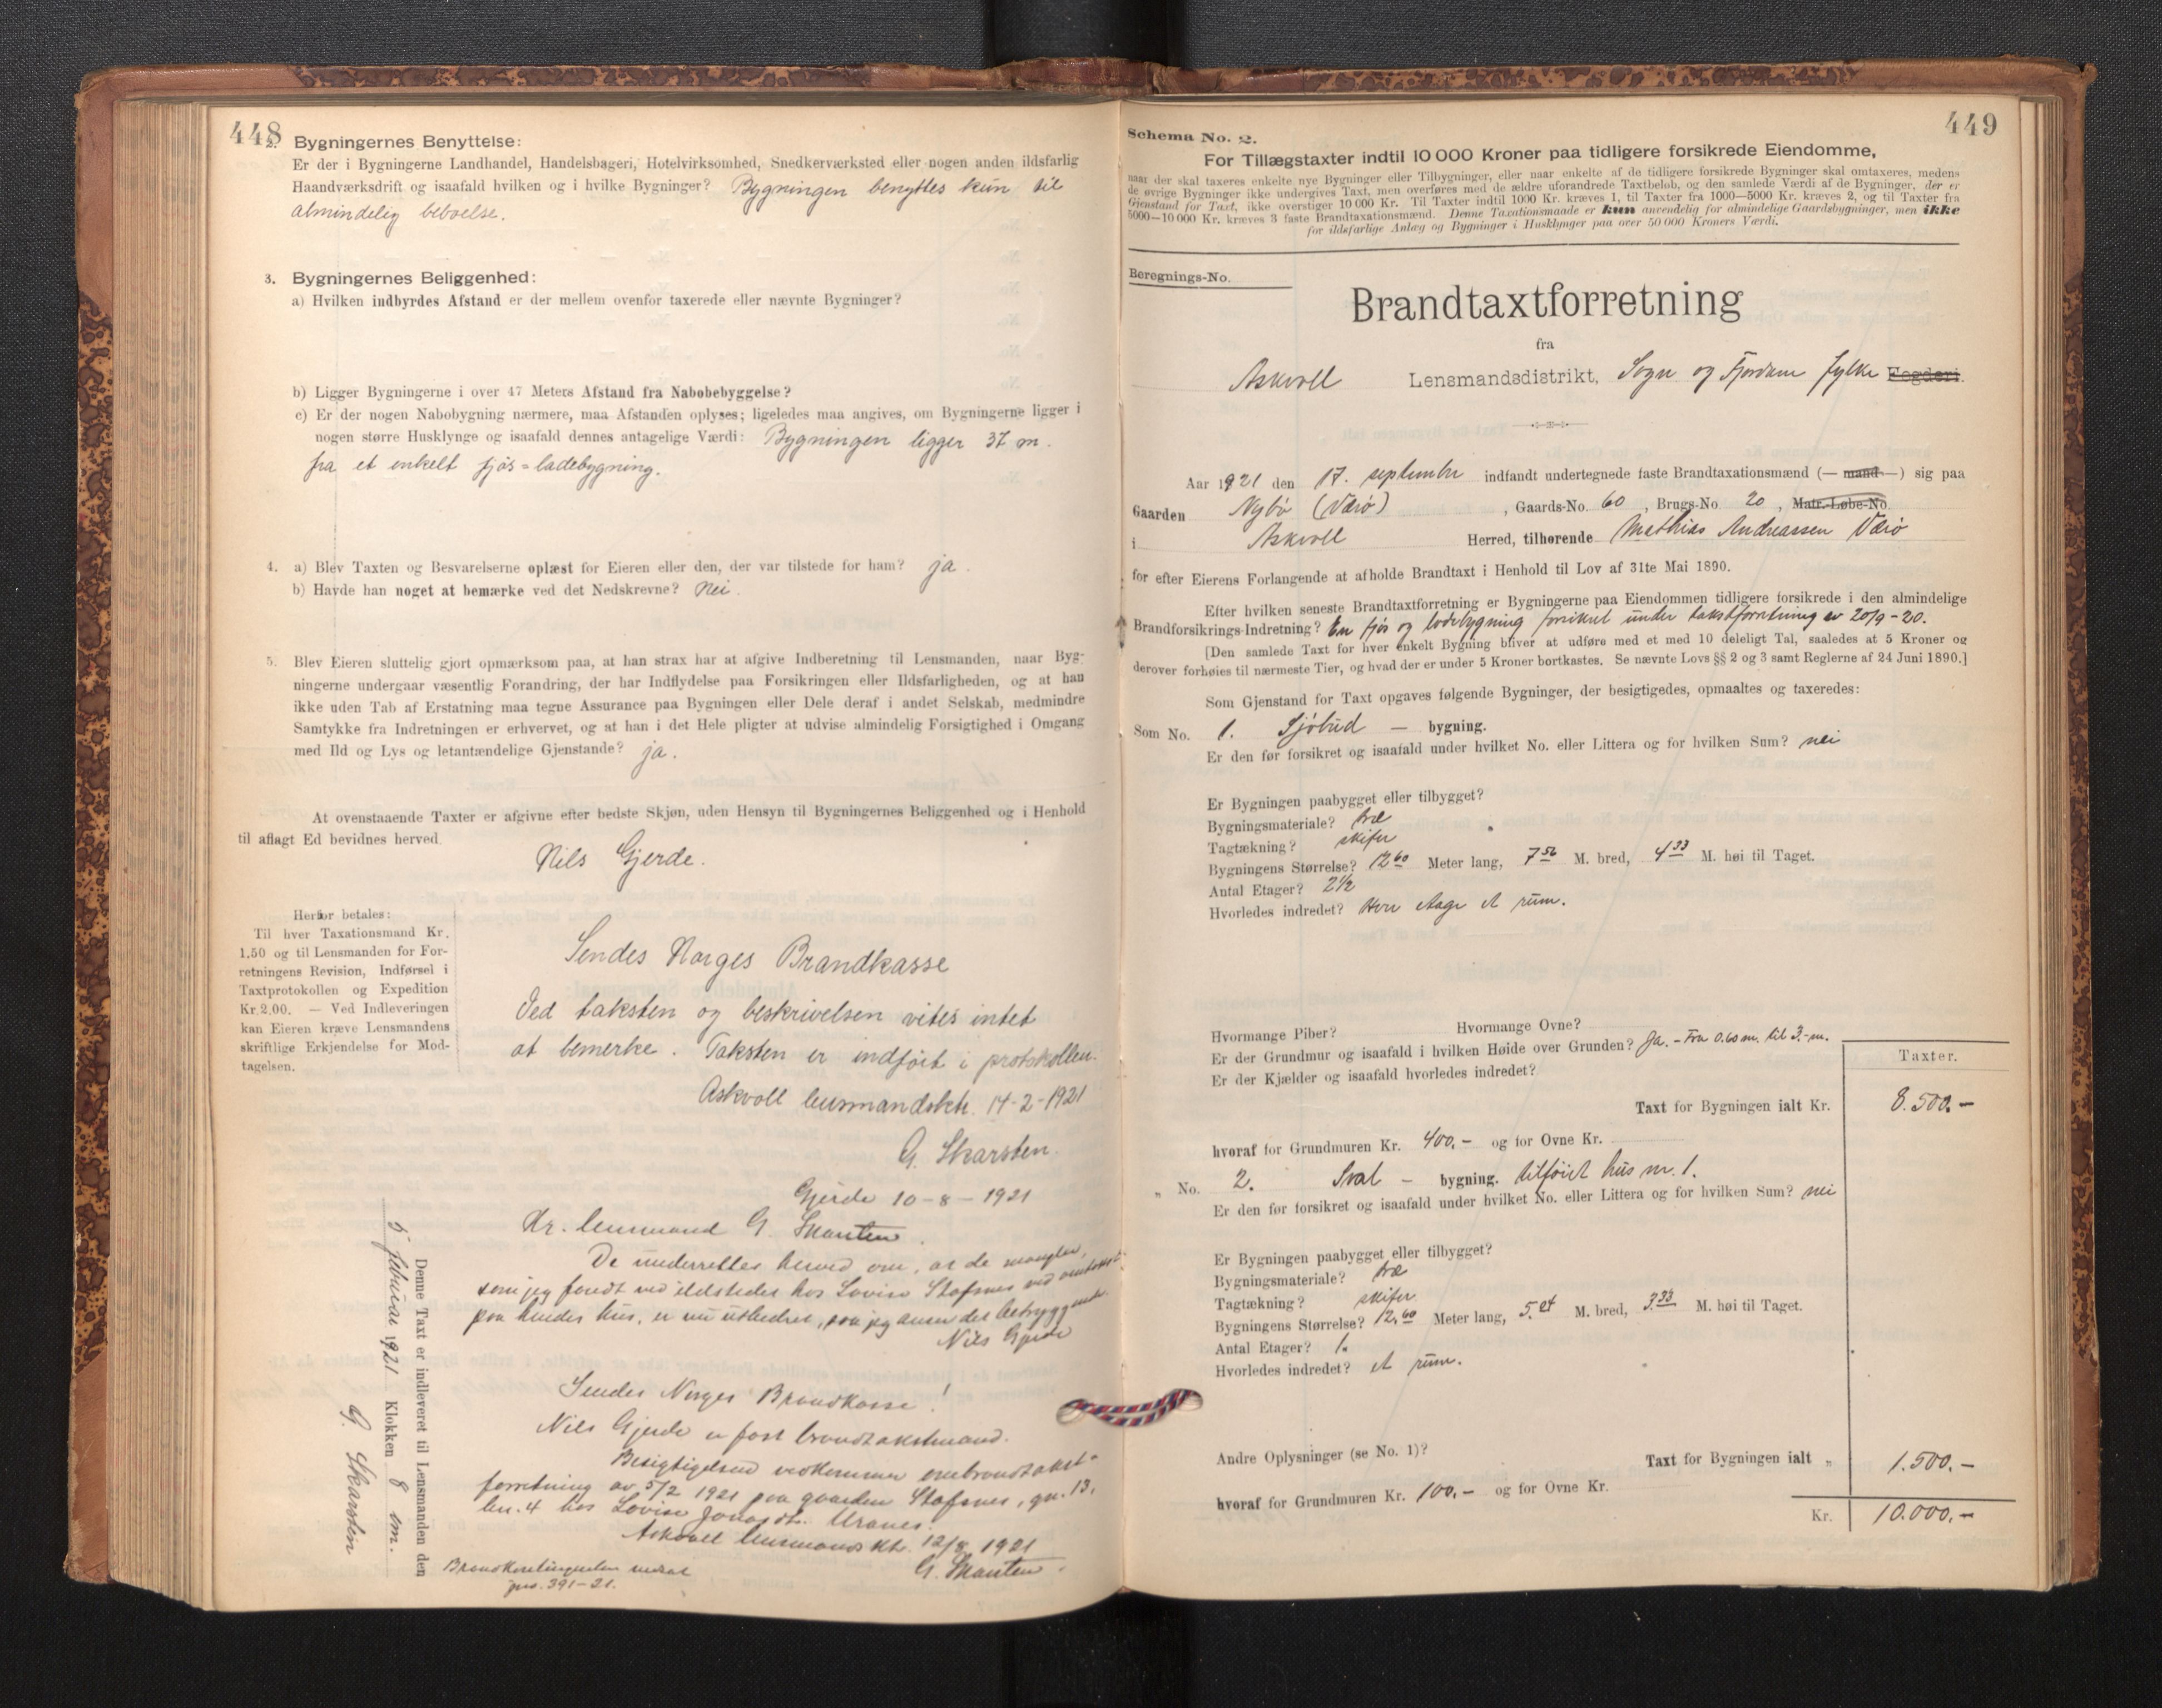 448
2. Bygningernes Benyttelse:
Er der i Bygningerne Landhandel, Handelsbageri, Hotelvirksomhed, Snedkerværksted eller nogen anden ildsfarlig
Haandværksdrift og isaafald hvilken og i hvilke Bygninger? Bygningen benyttes kun til
almindelig beboelse.
3. Bygningernes Beliggenhed:
a) Hvilken indbyrdes Afstand er der mellem ovenfor taxerede eller nævnte Bygninger?
b) Ligger Bygningerne i over 47 Meters Afstand fra Nabobebyggelse?
c) Er der nogen Nabobygning nærmere, maa Afstanden oplyses; ligeledes maa angives, om Bygningerne ligger i
nogen større Husklynge og isaafald dennes antagelige Værdi: Bygningen ligger 37 m.
fra et enkelt fjøs=ladebygning.
4. a) Blev Taxten og Besvarelserne oplæst for Eieren eller den, der var tilstede for ham? ja.
b) Havde han noget at bemærke ved det Nedskrevne? Nei.
5. Blev Eieren sluttelig gjort opmærksom paa, at han strax har at afgive Indberetning til Lensmanden, naar Byg-
ningerne undergaar væsentlig Forandring, der har Indflydelse paa Forsikringen eller Ildsfarligheden, og at han
ikke uden Tab af Erstatning maa tegne Assurance paa Bygningen eller Dele deraf i andet Selskab, medmindre
Samtykke fra Indretningen er erhvervet, og at han i det Hele pligter at udvise almindelig Forsigtighed i Omgang
med Ild og Lys og letantændelige Gjenstande? ja.
At ovenstaaende Taxter er afgivne efter bedste Skjøn, uden Hensyn til Bygningernes Beliggenhed og i Henhold
til aflagt Ed bevidnes herved.
Nils Gjerde.
Herfor betales:
Til hver Taxationsmand Kr.
1.50 og til Lensmanden for For-
retningens Revision, Indførsel i
Taxtprotokollen og Expedition
Kr. 2.00. — Ved Indleveringen
kan Eieren kræve Lensmandens
skriftlige Erkjendelse for Mod-
tagelsen.
Sendes Norges Brandkasse
Ved taksten og beskrivelsen vites intet
at bemerke. Taksten er indført i protokollen.
Askvoll lensmandsktr. 14-2-1921
G. Skarsten.
Gjerde 10-8-1921
Hr. lensmand G. Skarsten.
De underrettes herved om, at de mangler,
som jeg fandt ved ildstedet hos Lovise Stafsnes ved
paa hendes hus, er nu utbedret, saa jeg anser det betryggende.
Nils Gjerde
Sendes Norges Brandkasse!
Nils Gjerde er fast brandtakstmand.
Besigtigelsen vedkommer ombrandtakst-
forretning av 5/2 1921 paa gaarden Stafsnes, gn. 13,
bn. 4 hos Lovise
Askvoll lensmandsktr. 12/8 1921
G. Skarsten.
jno. 391-21.
Denne Taxt er indleveret til Lensmanden den
5 februar 1921 Klokken 8 em.
G. Skarsten
449
Schema No. 2.
For Tillægstaxter indtil 10 000 Kroner paa tidligere forsikrede Eiendomme,
naar der skal taxeres enkelte nye Bygninger eller Tilbygninger, eller naar enkelte af de tidligere forsikrede Bygninger skal omtaxeres, medens
de øvrige Bygninger ikke undergives Taxt, men overføres med de ældre uforandrede Taxtbeløb, og den samlede Værdi af de Bygninger, der er
Gjenstand for Taxt, ikke overstiger 10 000 Kr. Til Taxter indtil 1000 Kr. kræves 1, til Taxter fra 1000—5000 Kr. kræves 2, og til Taxter fra
5000—10 000 Kr. kræves 3 faste Brandtaxationsmænd. Denne Taxationsmaade er kun anvendelig for almindelige Gaardsbygninger, men ikke
for ildsfarlige Anlæg og Bygninger i Husklynger paa over 50 000 Kroners Værdi.
Beregnings-No.
Brandtaxtforretning
fra
Askvoll Lensmandsdistrikt, Sogn og Fjordane fylke Fogderi.
Aar 1921 den 17. september indfandt undertegnede faste Brandtaxationsmænd (— mand —) sig paa
Gaarden Nybø (Værø), Gaards-No. 60, Brugs-No. 20, Matr.-Løbe-No.
i Askvoll Herred, tilhørende Mathias Andreassen Værø
for efter Eierens Forlangende at afholde Brandtaxt i Henhold til Lov af 31te Mai 1890.
Efter hvilken seneste Brandtaxtforretning er Bygningerne paa Eiendommen tidligere forsikrede i den almindelige
Brandforsikrings-Indretning? En fjøs og ladebygning forsikret under takstforretning av 20/9-20.
[Den samlede Taxt for hver enkelt Bygning bliver at udføre med et med 10 deleligt Tal, saaledes at 5 Kroner og
derover forhøies til nærmeste Tier, og hvad der er under 5 Kroner bortkastes. Se nævnte Lovs §§ 2 og 3 samt Reglerne af 24 Juni 1890.]
Som Gjenstand for Taxt opgaves følgende Bygninger, der besigtigedes, opmaaltes og taxeredes:
Som No. 1. Sjøbud — bygning.
Er den før forsikret og isaafald under hvilket No. eller Littera og for hvilken Sum? nei
Er Bygningen paabygget eller tilbygget?
Bygningsmateriale? træ
Tagtækning? skifer
Bygningens Størrelse? 12 60 Meter lang, 7 56 M. bred, 4 33 M. høi til Taget.
Antal Etager? 2½
Hvorledes indredet? Hver etage et rum.
Hvormange Piber? Hvormange Ovne?
Er der Grundmur og isaafald i hvilken Høide over Grunden? Ja. - Fra 0.60 m. til 3.- m.
Er der Kjælder og isaafald hvorledes indredet?
Taxter.
Taxt for Bygningen ialt Kr. 8.500.-
hvoraf for Grundmuren Kr. 400.- og for Ovne Kr.
„ No. 2. Sval — bygning. tilføiet hus nr. 1.
Er den før forsikret og isaafald under hvilket No. eller Littera og for hvilken Sum? nei
Er Bygningen paabygget eller tilbygget?
Bygningsmateriale? træ
Tagtækning? skifer
Bygningens Størrelse? 12.60 Meter lang, M. bred, 3.33 M. høi til Taget.
Antal Etager? 1.
Hvorledes indredet? et rum.
Andre Oplysninger (se No. 1)?
Taxt for Bygningen ialt „ 1.500.-
hvoraf for Grundmuren Kr. 100.- og for Ovne Kr.
Kr. 10.000.-